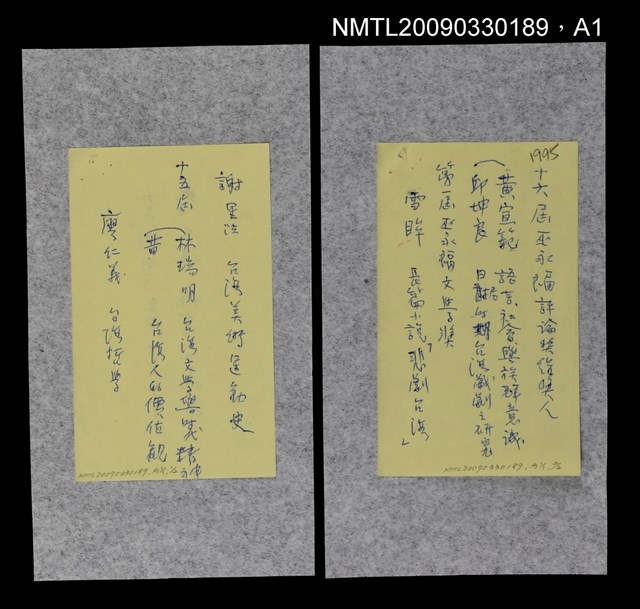 NMTL20090330189，A1
1995
十六屆巫永福評論獎得獎人
黃宣範 語言、社會與族群意識
邱坤良 日治時期台湾戲劇之研究
第一屆巫永福文學獎
雪眸 長篇小說「悲劇台湾」
NMTL20090330189
謝里法 台湾美術運動史
十五屆 林瑞明 台湾文學與時代精神
黄 台湾人的價值観
廖仁義 台湾哲學
NMTL20090330189